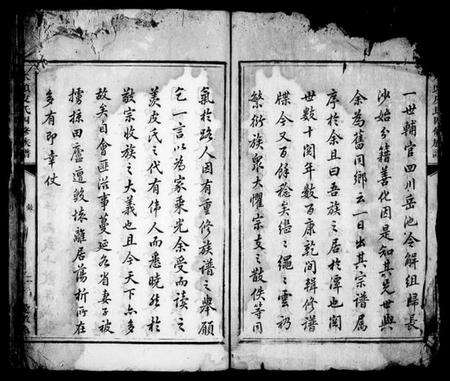 一世輔官四川岳池令解組歸長
沙始分籍善化因是知其先世與
余為舊同鄉云一日出其宗譜屬
序於余且曰吾族之居於潭也閱
世數十閱年數百康乾間輯修譜
牒今又百餘稔矣繼之繩之雲礽
繁衍族眾大懼宗支之散佚等同
氣於路人因有重修族譜之舉願
乞一言以為家乘光余受而讀之
羨皮氏之代有偉人而悉曉然於
敬宗收族之大義也且今天下亦多
故矣自會匪滋事蔓延各省妻子被
擄孫田廬遭毀壞離居蕩析所在
多有即幸仗